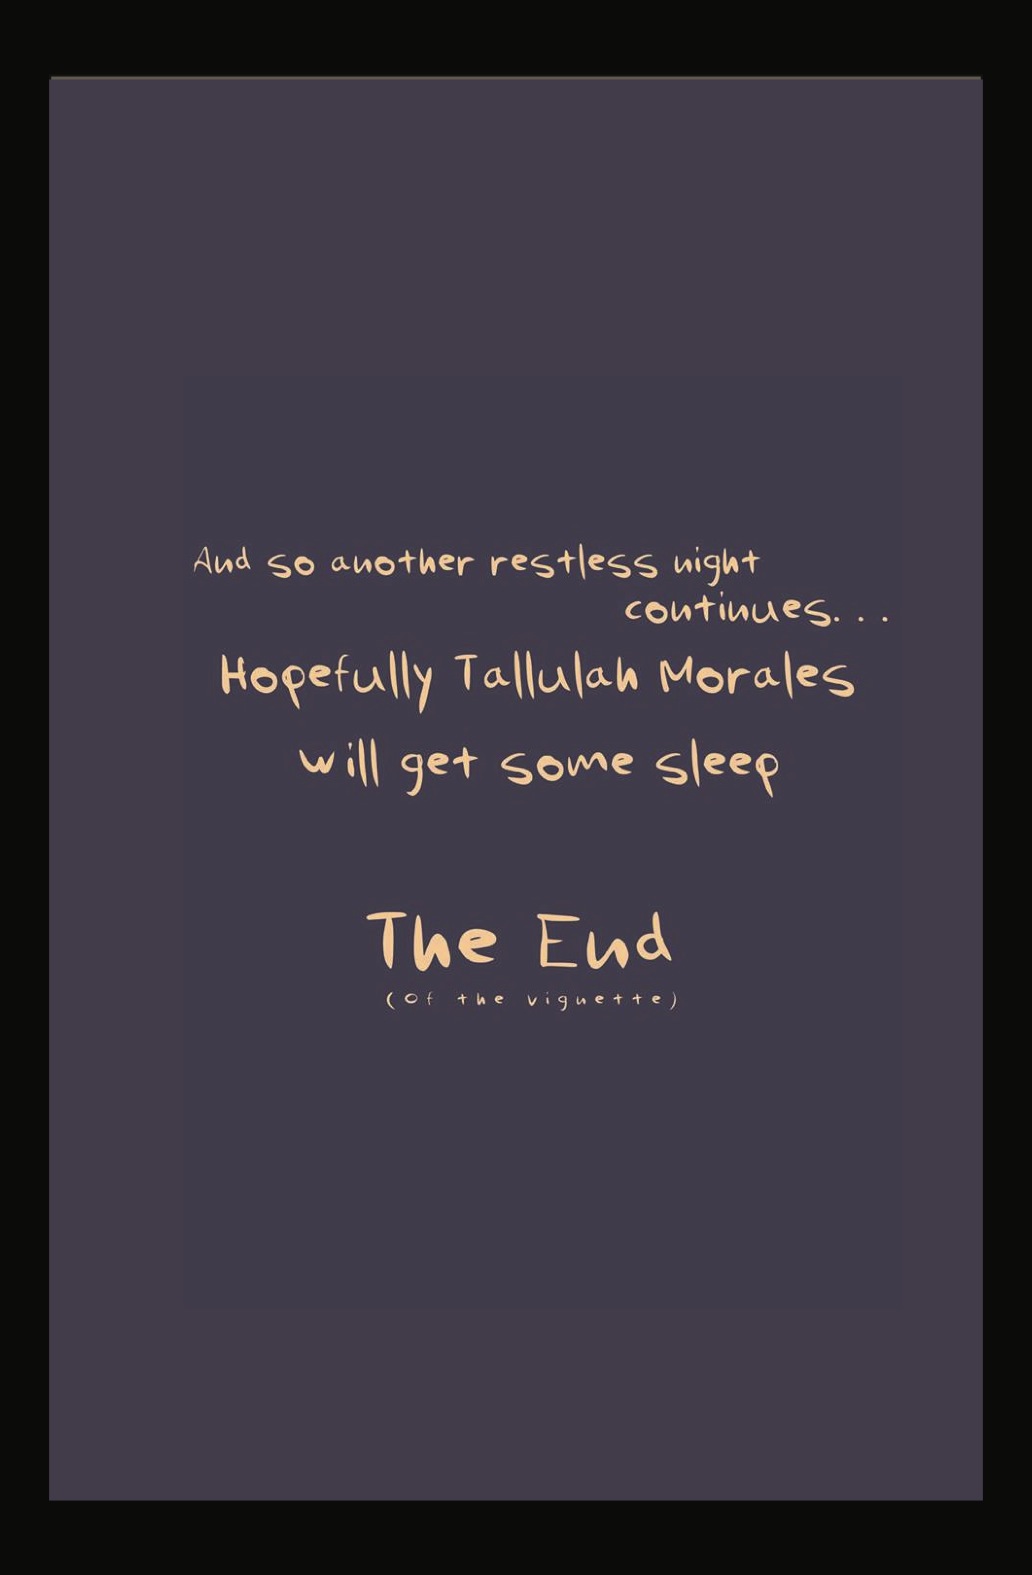 And so another restless night
continues...
Hopefully Tallulah Morales
will get some sleep
The End
(Of the vignette)